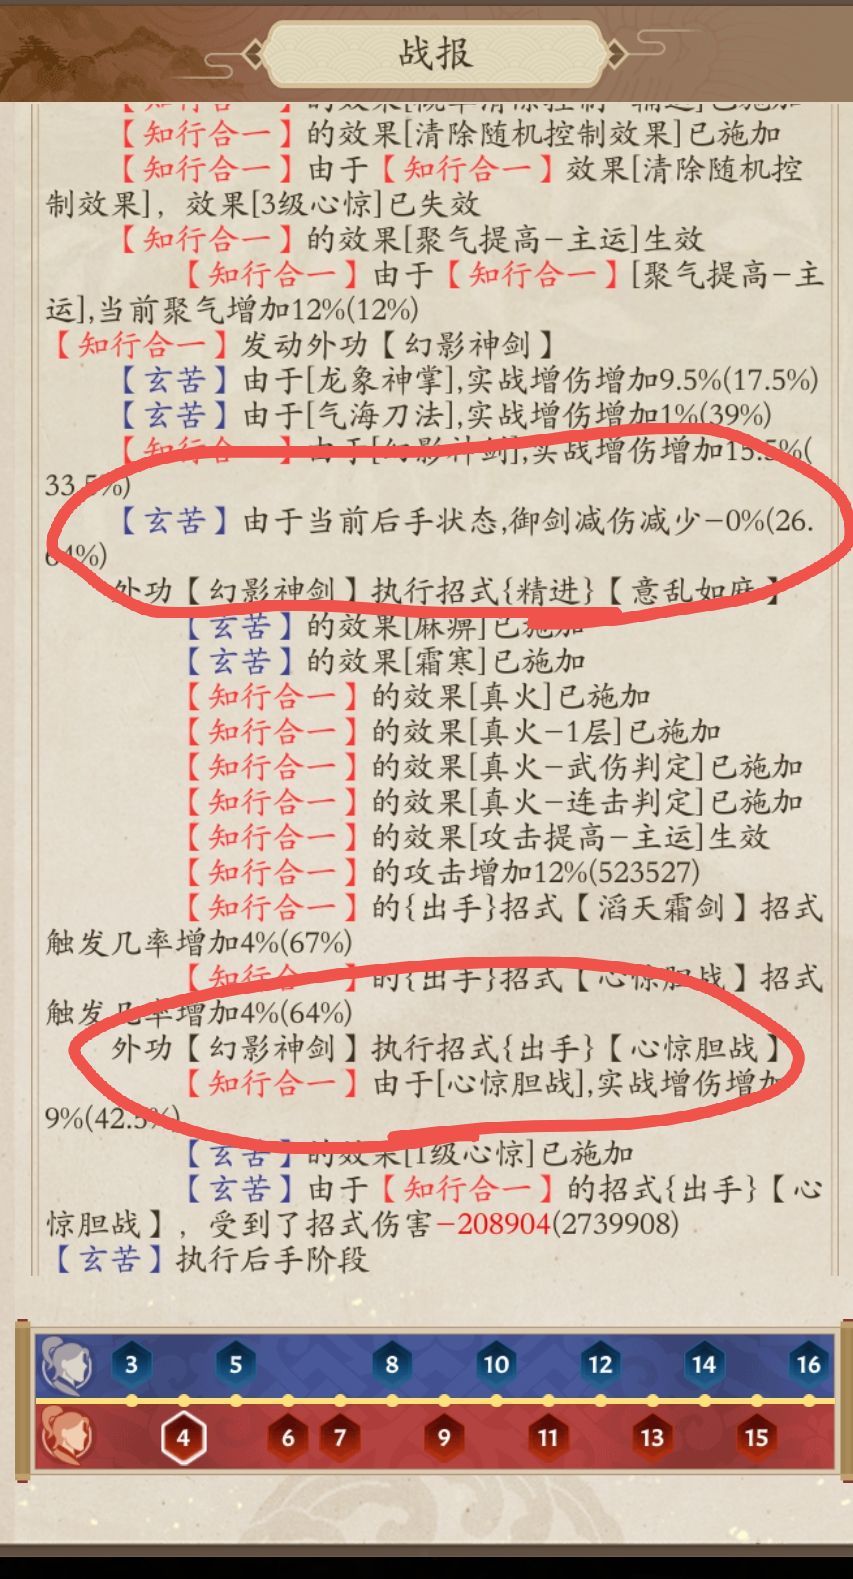 战报
【知行合一】的效果[概率清除控制-辅运]已施加
【知行合一】的效果[清除随机控制效果]已施加
【知行合一】由于【知行合一】效果[清除随机控
制效果]，效果[3级心惊]已失效
【知行合一】的效果[聚气提高-主运]生效
【知行合一】由于【知行合一】[聚气提高-主
运],当前聚气增加12%(12%)
【知行合一】发动外功【幻影神剑】
【玄苦】由于[龙象神掌],实战增伤增加9.5%(17.5%)
【玄苦】由于[气海刀法],实战增伤增加1%(39%)
【知行合一】由于[幻影神剑],实战增伤增加15.5%(
33.5%)
【玄苦】由于当前后手状态,御剑减伤减少-0%(26.
64%)
外功【幻影神剑】执行招式{精进}【意乱如麻】
【玄苦】的效果[麻痹]已施加
【玄苦】的效果[霜寒]已施加
【知行合一】的效果[真火]已施加
【知行合一】的效果[真火-1层]已施加
【知行合一】的效果[真火-武伤判定]已施加
【知行合一】的效果[真火-连击判定]已施加
【知行合一】的效果[攻击提高-主运]生效
【知行合一】的攻击增加12%(523527)
【知行合一】的{出手}招式【滔天霜剑】招式
触发几率增加4%(67%)
【知行合一】的{出手}招式【心惊胆战】招式
触发几率增加4%(64%)
外功【幻影神剑】执行招式{出手}【心惊胆战】
【知行合一】由于[心惊胆战],实战增伤增加
9%(42.5%)
【玄苦】的效果[1级心惊]已施加
【玄苦】由于【知行合一】的招式{出手}【心
惊胆战】，受到了招式伤害-208904(2739908)
【玄苦】执行后手阶段
3 5 8 10 12 14 16
4 6 7 9 11 13 15